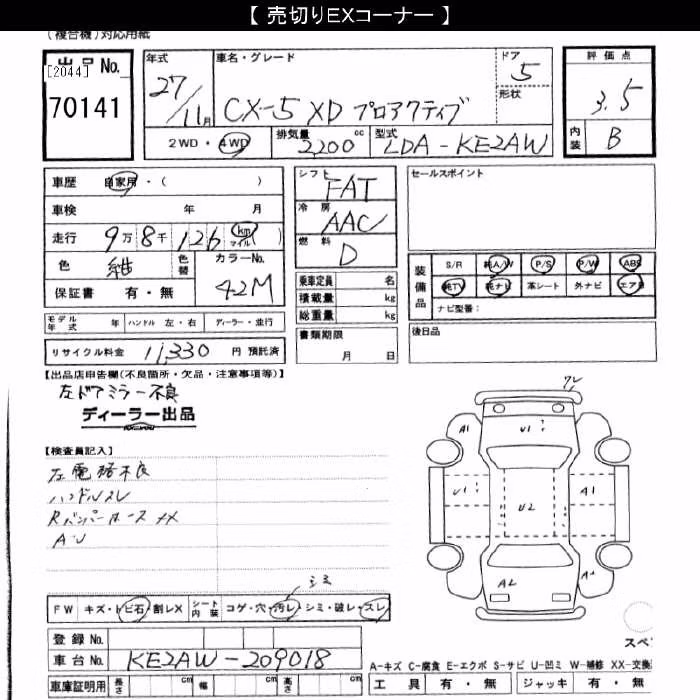 【 売切りEXコーナー 】
(複合機)対応用紙
出品No.
[2044]
70141
年式
27/11月
車名・グレード
CX-5 XD プロアクティブ
ドア
5
形状
評価点
3.5
内装
B
2WD・4WD
排気量
2200 cc
型式
LDA-KE2AW
車歴 自家用・( )
車検 年 月
走行 9万8千126 km マイル ( )
色 紺 色替 カラーNo. 42M
保証書 有・無
モデル年式 年 ハンドル 左・右 ディーラー・並行
リサイクル料金 11,330 円 預託済
シフト FAT
冷房 AAC
燃料 D
乗車定員 名
積載量 kg
総重量 kg
書類期限
月 日
セールスポイント
装備品
S/R 純A/W P/S P/W ABS
純TV 純ナビ 革シート 外ナビ エアB
ナビ型番：
後日品
【出品店申告欄(不良箇所・欠品・注意事項等)】
左ドアミラー不良
ディーラー出品
【検査員記入】
左電格不良
ハンドルスレ
A・U
A1 U1
U1 A1
U2
A2 A2
シミ
FW キズ・トビ石・割レX シート内装 コゲ・穴・汚レ・シミ・破レ・スレ
登録No.
車台No. KE2AW-209018
車庫証明用 長さ 幅 高さ
スペ
A-キズ C-腐食 E-エクボ S-サビ U-凹ミ W-補修 XX-交換
工具 有・無 ジャッキ 有・無